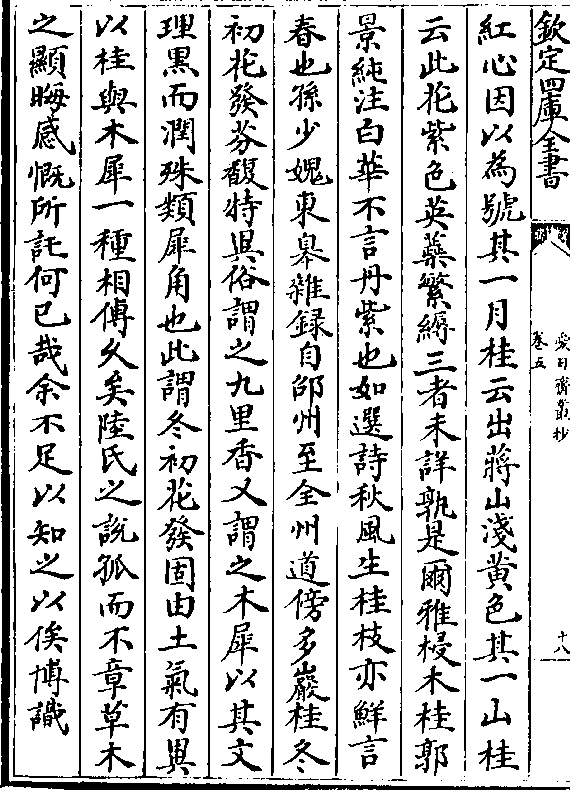 欽定四庫全書
愛日齋叢抄
卷五
十八
紅心因以為號其一月桂云出蔣山淺黃色其一山桂
云此花紫色英蘂繁縟三者未詳孰是爾雅梫木桂郭
景純注白華不言丹紫也如選詩秋風生桂枝亦鮮言
春也孫少魏東臯雜録自邵州至全州道傍多巖桂冬
初花發芬馥特異俗謂之九里香又謂之木犀以其文
理黑而潤殊類犀角也此謂冬初花發固由土氣有異
以桂與木犀一種相傳久矣陸氏之說孤而不章草木
之顯晦感慨所託何已哉余不足以知之以俟博識